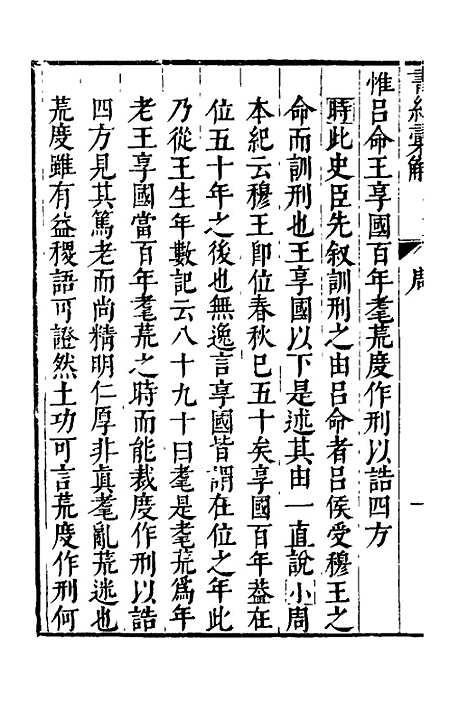 惟呂命王享國百年耄荒度作刑以誥四方
時此史臣先叙訓刑之由呂命者呂侯受穆王之
命而訓刑也王享國以下是述其由一直說小周
本紀云穆王即位春秋已五十矣享國百年葢在
位五十年之後也無逸言享國皆謂在位之年此
乃從王生年數記云八十九十曰耄是耄荒爲年
老王享國當百年耄荒之時而能裁度作刑以誥
四方見其篤老而尚精明仁厚非眞耄亂荒迷也
荒度雖有益稷語可證然土功可言荒度作刑何